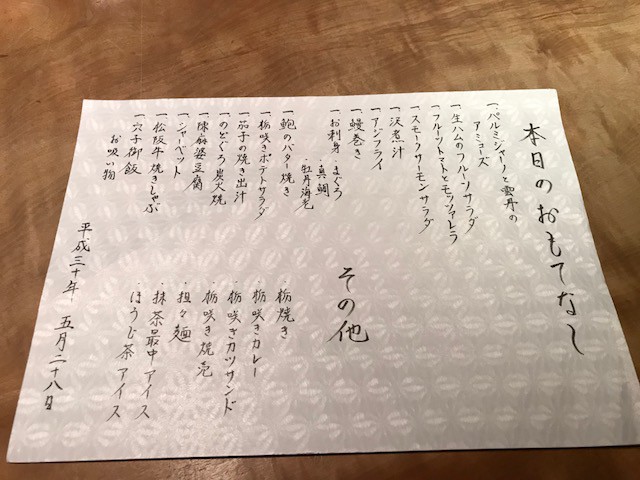 本日のおもてなし
一、パルミジャーノと雲丹の
アミューズ
一 生ハムのフルーツサラダ
一 フルーツトマトとモッツァレラ
一 スモークサーモンサラダ
一 沢煮汁
一 アジフライ
一 鰻巻き
一 お刺身 ・まぐろ
・真鯛
・牡丹海老
一 鮑のバター焼き
一 栃咲きポテトサラダ
一 茄子の焼き出汁
一 のどぐろ炭火焼
一 陳麻婆豆腐
一 シャーベット
一 松阪牛焼きしゃぶ
一 穴子御飯
お吸い物
その他
・栃焼き
・栃咲きカレー
・栃咲きカツサンド
・栃咲き焼売
・担々麺
・抹茶最中アイス
・ほうじ茶アイス
平成三十年 五月二十八日